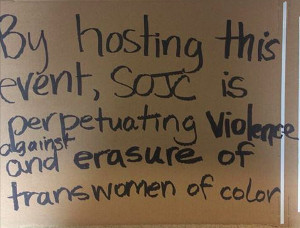 By hosting this
event, SOJC is
perpetuating violence
against
and erasure of
transwomen of color